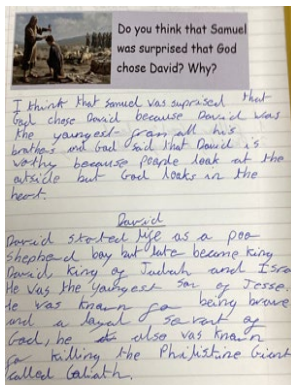 Do you think that Samuel
was surprised that God
chose David? Why?
I think that samuel was suprised that
God chose David because David was
the youngest from all his
brothers and God said that David is
wothy because people look at the
outside but God looks in the
heart.
David
David started life as a poo
shepherd boy but late become king
David king of Judah and Isra
He was the youngest son of Jesse.
He was known for being brave
and a loyal servant of
God, he also was known
for killing the Philistine Giant
called Goliath.